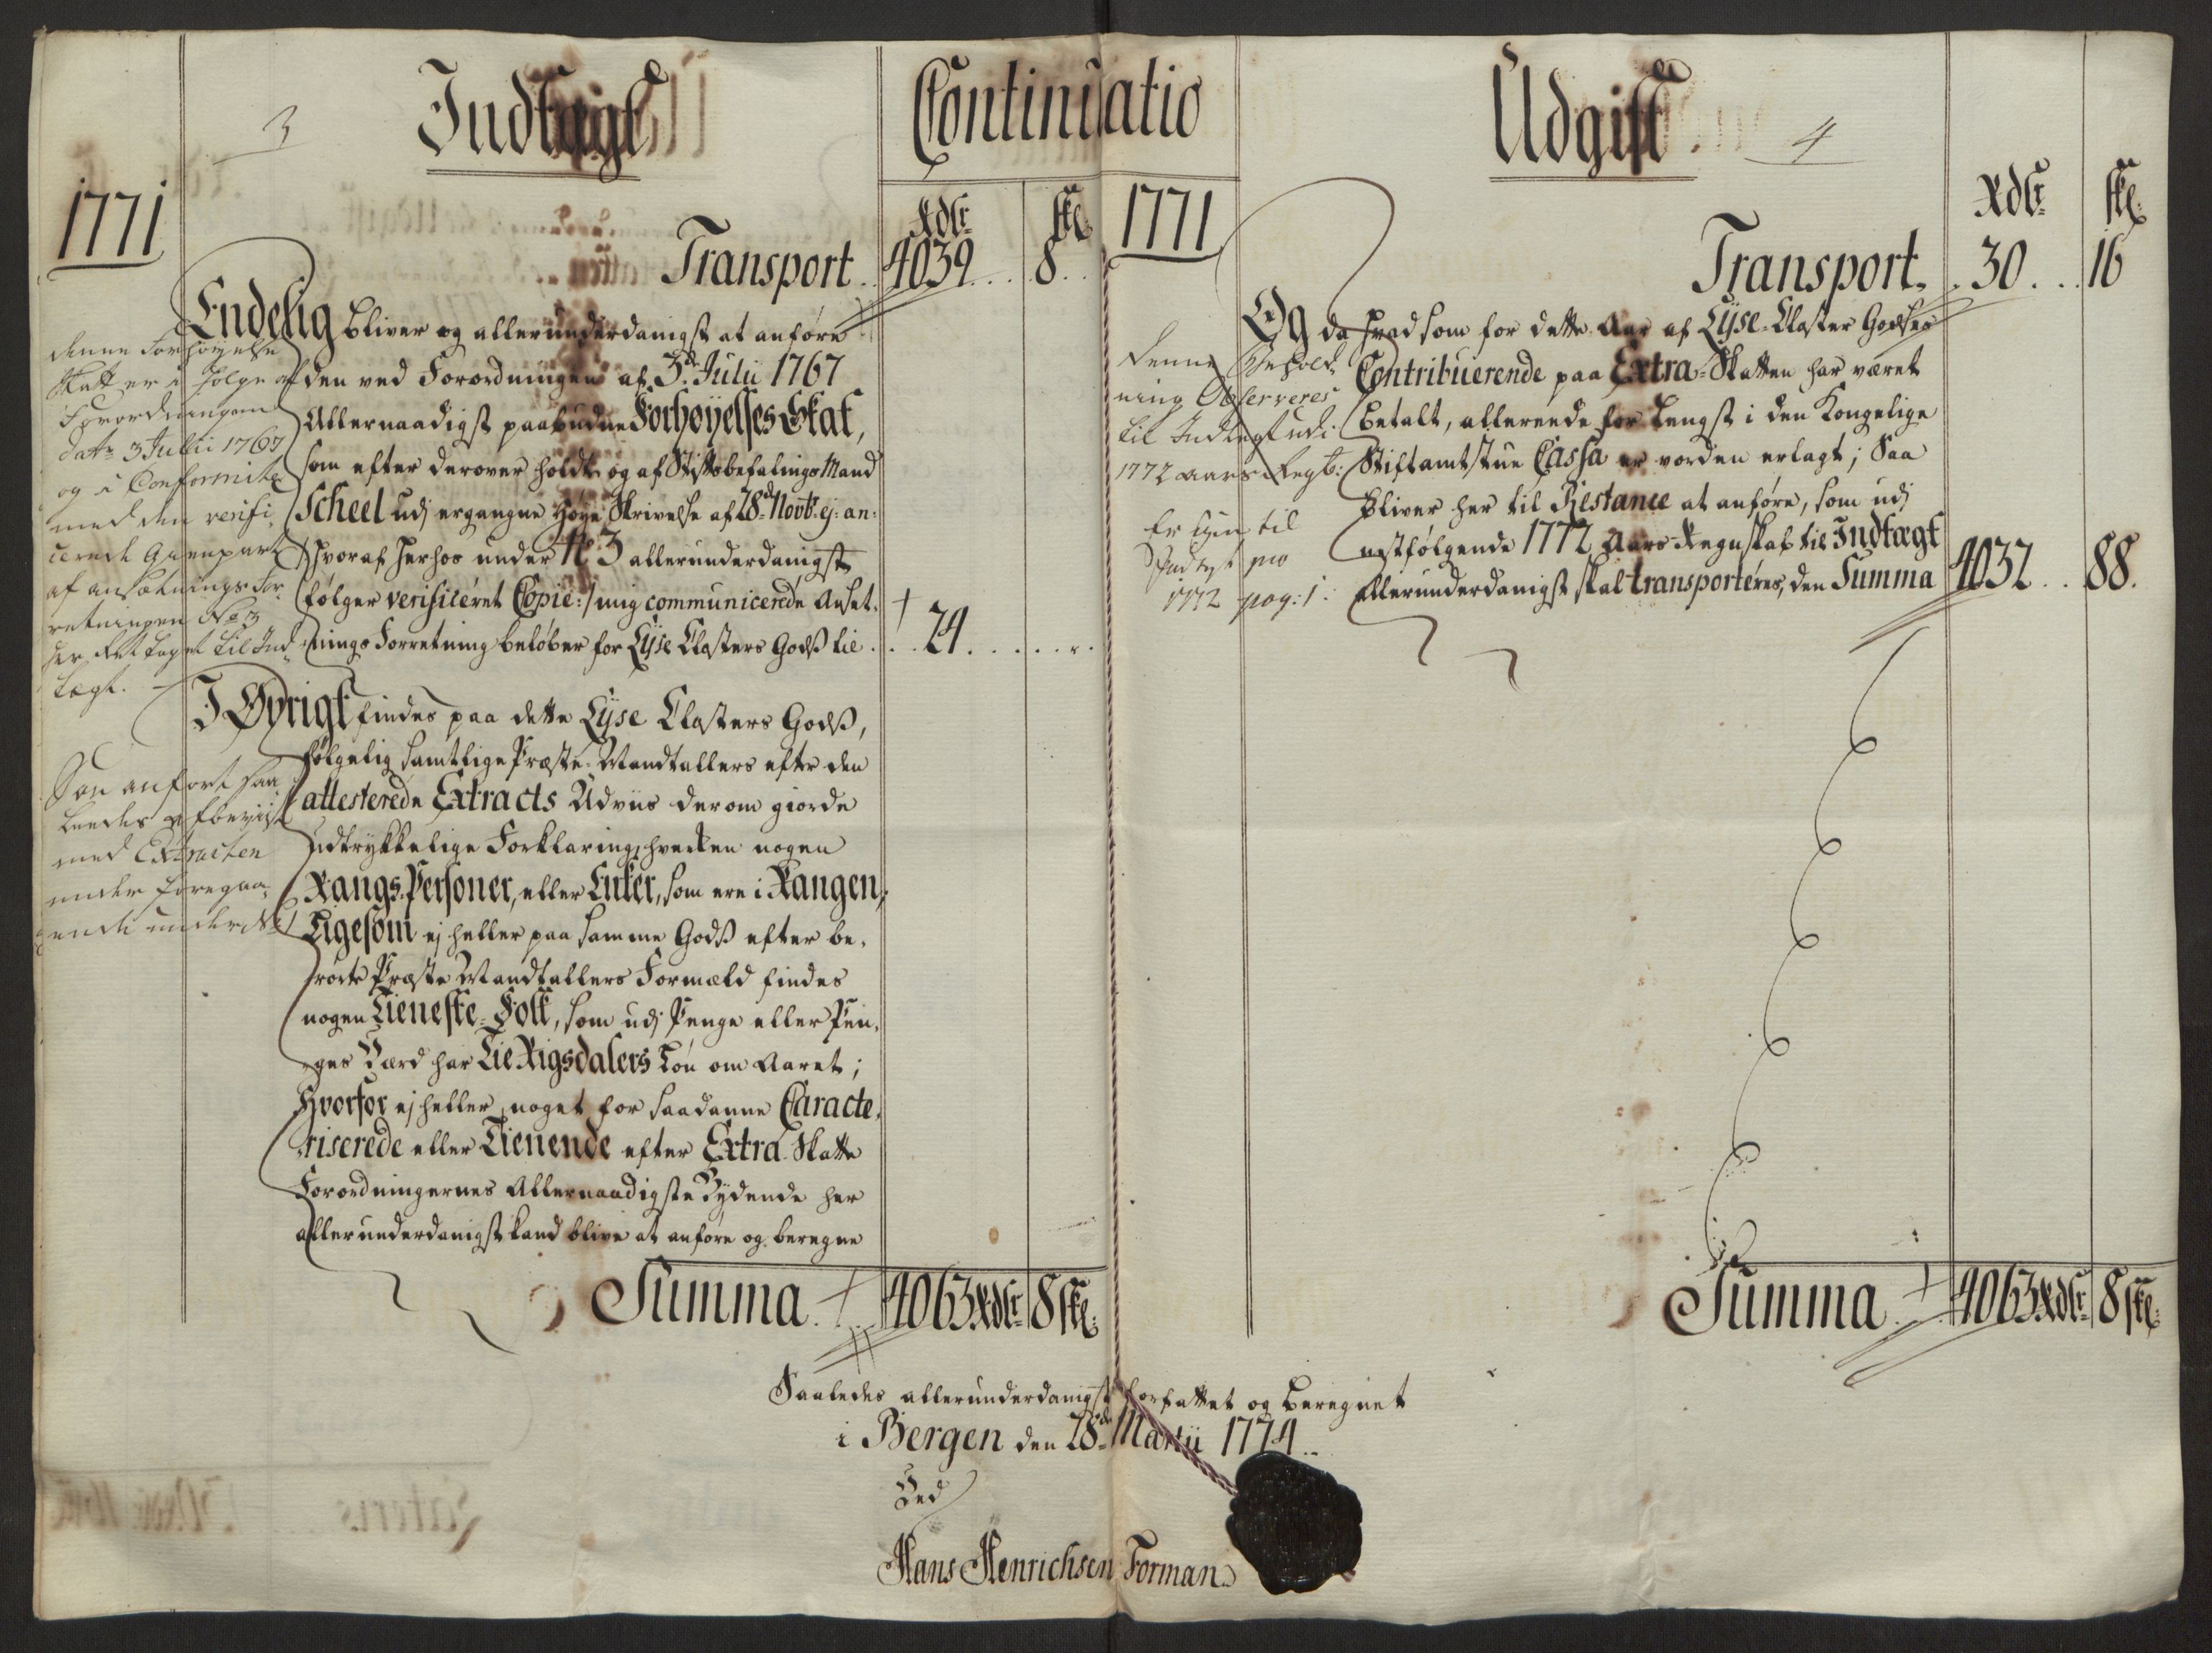 3
Indtægt
Continuatio
1771
Rdlr
sk
Transport .. 4039 ... 8 ..
Endelig bliver og allerunderdanigst at anføre
den ved Forordningen af 3d Julii 1767
Allernaadigst paabudne Forhøyelses Skat,
som efter derover holdte og af Stiftsbefalings Mand
Scheel udj ergangne Høye Skrivelse af 28d Novb: ej: an:
hvoraf herhos under No 3 allerunderdanigst
følger verificeret Copie:/ mig communicerede Ansæt-
nings Forretning beløber for Lyse Closters Gods tie ... 24 ......
denne Forhøyelse
Skatt er i følge af
Forordningen
dat: 3 Julii 1767
og i Conformite
med den verifi-
cerede Gienpart
af ansætnings For-
retningen No 3
her rettaget til Ind-
tægt. -
I Øvrigt findes paa dette Lyse Closters Gods,
følgelig samtlige Præste-Mandtallers efter den
attesterede Extracts Udviis derom giorde
udtrykkelige Forklaring, hverken nogen
Rangs-Personer, eller Enker, som ere i Rangen,
Ligesom ej heller paa samme Gods efter be-
rørte Præste Mandtallers Formæld findes
nogen Tieneste-Folk, som udj Penge eller Pen-
ges Værd har Tie Rigsdalers Løn om Aaret;
Hvorfor ej heller noget for saadanne Caracte-
riserede eller Tienende efter Extra-Skatte
Forordningernes Allernaadigste Bydende her
allerunderdanigst kand blive at anføre og beregne
Saa anført saa-
ledes afbeviist
med Extracten
under foregaa-
ende under No 1
Summa . 4063 Rdlr 8 sk:
Udgift
4
1771
Rdlr
sk
Transport. . 30 ... 16
Og da hvad som for dette Aar af Lyse-Closter Godses
Contribuerende paa Extra-Skatten har været
betalt, allerede for længst i den Kongelige
Stiftamtstue Cassa er vorden erlagt; Saa
bliver her til Restance at anføre, som udj
næstfølgende 1772 Aars Regnskab til Indtægt
allerunderdanigst skal transporteres, den Summa 4032 .. 88.
denne Behold-
ning Observeres
til Indtægt udi
1772 aars Regb:
Er igien til
Indtegt pro
1772 pag: 1.
Summa . 4063 Rdlr 8 sk:
Saaledes allerunderdanigst forfattet og beregnet
i Bergen den 28de Martii 1774 ..
Ved
Hans Henrichsen Forman